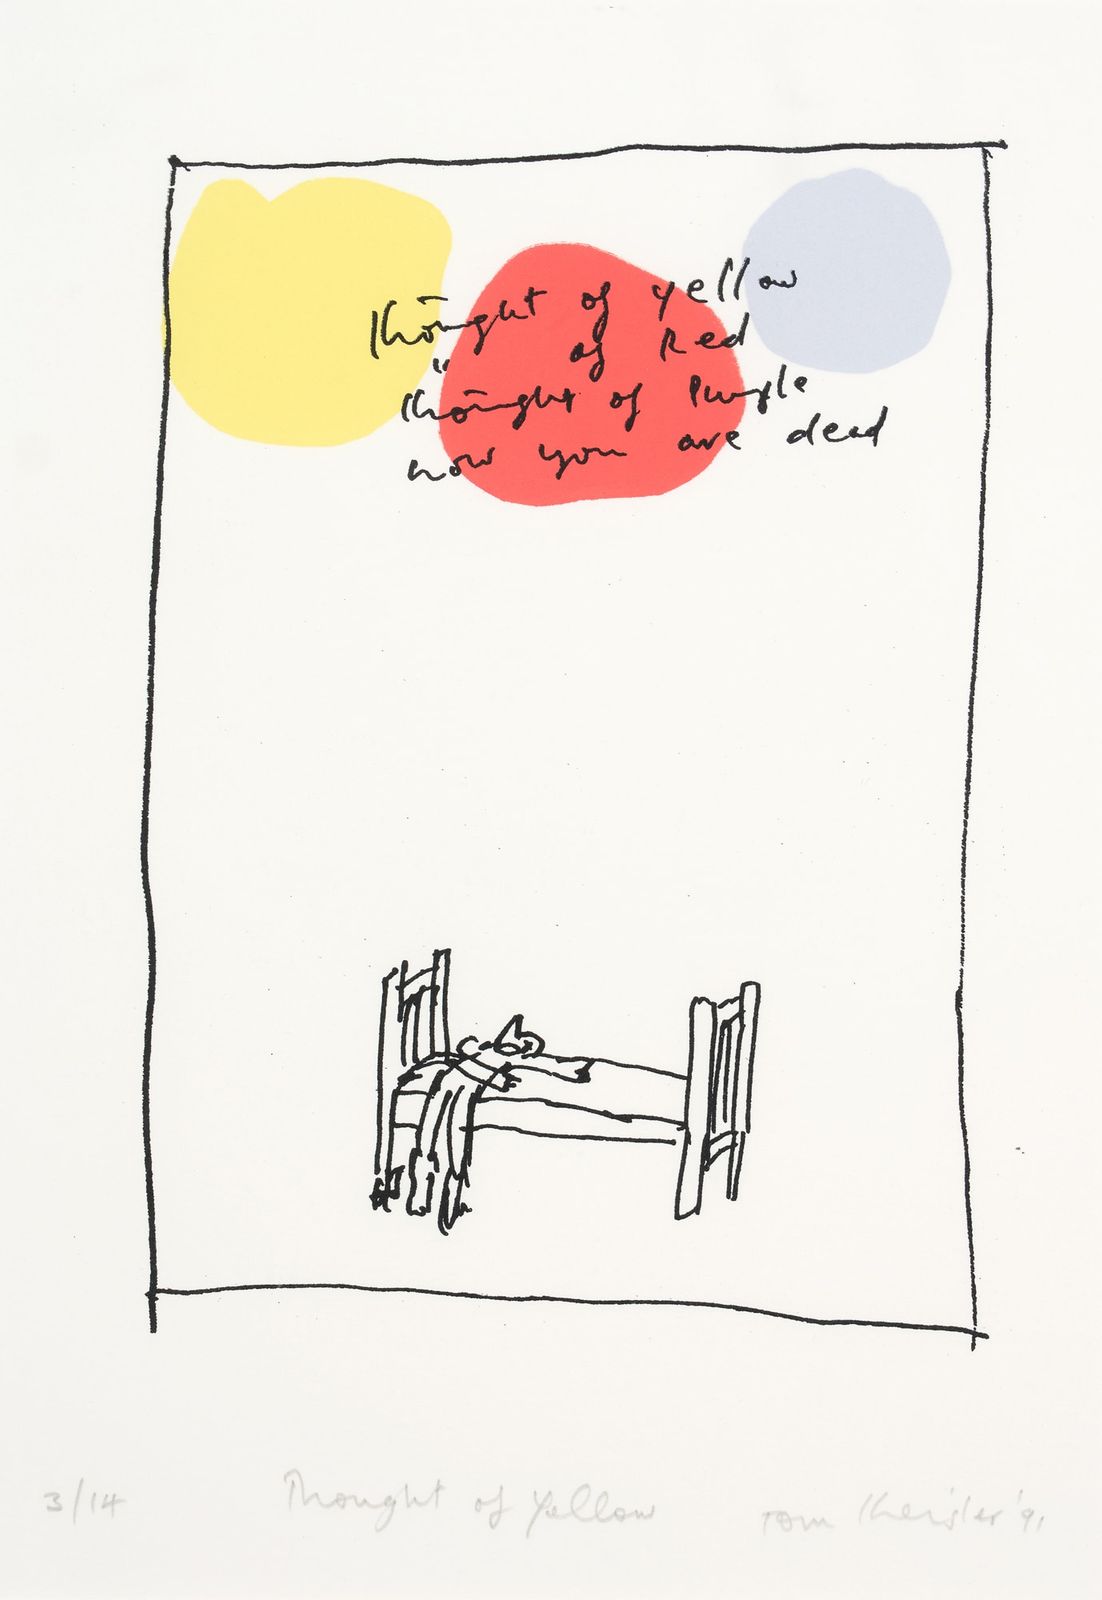 thought of yellow
" of Red
thought of Purple
now you are dead
3/14 Thought of Yellow Tom Kreisler '91